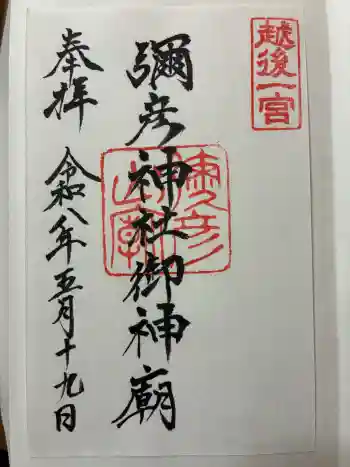 越後一宮
彌彦神社御神廟
奉拝
令和八年五月十九日